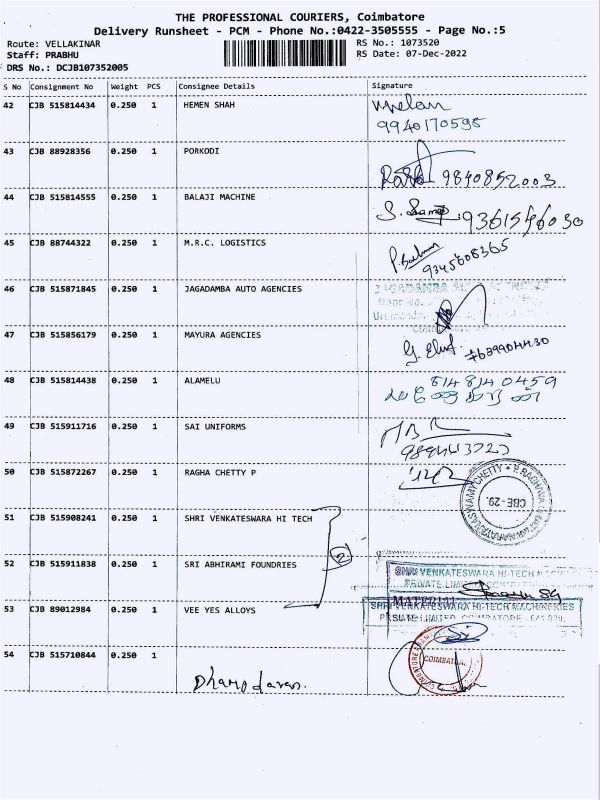 THE PROFESSIONAL COURIERS, Coimbatore
Delivery Runsheet - PCM - Phone No.:0422-3505555 - Page No.:5
Route: VELLAKINAR
RS No.: 1073520
Staff: PRABHU
RS Date: 07-Dec-2022
DRS No.: DCJB107352005
S No Consignment No Weight PCS Consignee Details Signature
42 CJB 515814434 0.250 1 HEMEN SHAH
9940170595
43 CJB 88928356 0.250 1 PORKODI
9840852003
44 CJB 515814555 0.250 1 BALAJI MACHINE
9361546030
45 CJB 88744322 0.250 1 M.R.C. LOGISTICS
9345608365
46 CJB 515871845 0.250 1 JAGADAMBA AUTO AGENCIES
47 CJB 515856179 0.250 1 MAYURA AGENCIES
48 CJB 515814438 0.250 1 ALAMELU
8148140459
49 CJB 515911716 0.250 1 SAI UNIFORMS
50 CJB 515872267 0.250 1 RAGHA CHETTY P
CBE-29.
51 CJB 515908241 0.250 1 SHRI VENKATESWARA HI TECH
2
52 CJB 515911838 0.250 1 SRI ABHIRAMI FOUNDRIES
SHRI VENKATESWARA HI-TECH
PRIVATE LIMITED
53 CJB 89012984 0.250 1 VEE YES ALLOYS
SHRI VENKATESWARA HI-TECH MACHINERIES
PRIVATE LIMITED COIMBATORE
54 CJB 515710844 0.250 1
COIMBATORE
Dhamodaran